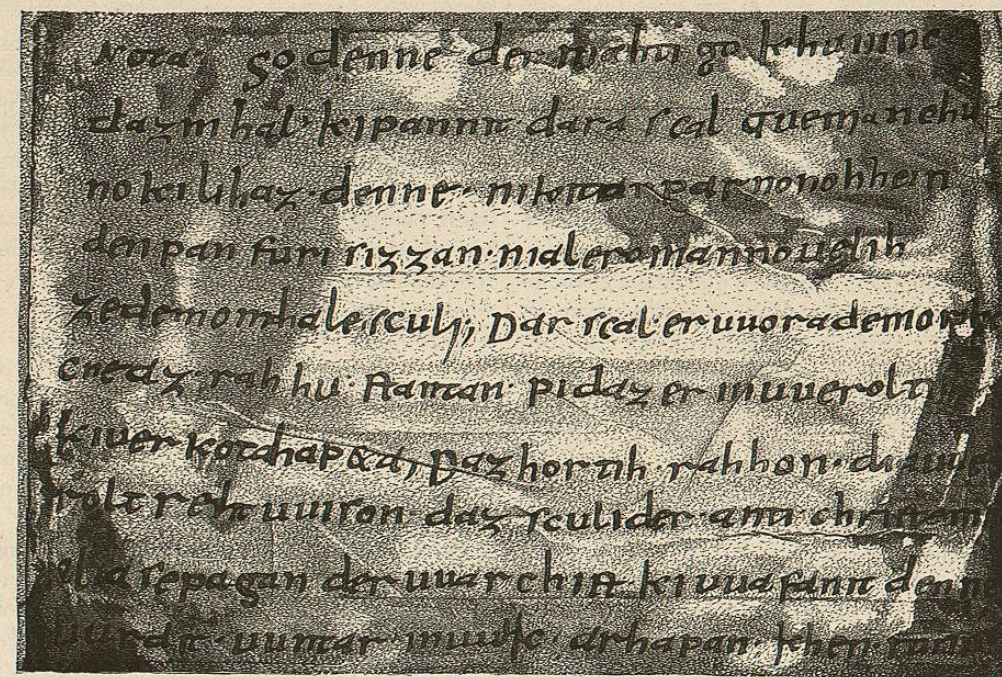 So denne der mahti go khuninc
dazm hal kipannit dara scal queman chu
no kilihaz · denne · nikitar parno nohhein
den pan furi sizzan · nialero manno uelih
ze demo mhale sculi; Dar scal er uuora demo
rah hu · stantan · pi daz er in uuerolti
kiuerkota hap&a; Daz hortih · rahhon · dia uue
rolt reht uuison daz sculi der anti christ mit
elia se pagan der uuarch ist kiuuafanit denne
uurdit · untar · in uuic · arhapan · khen